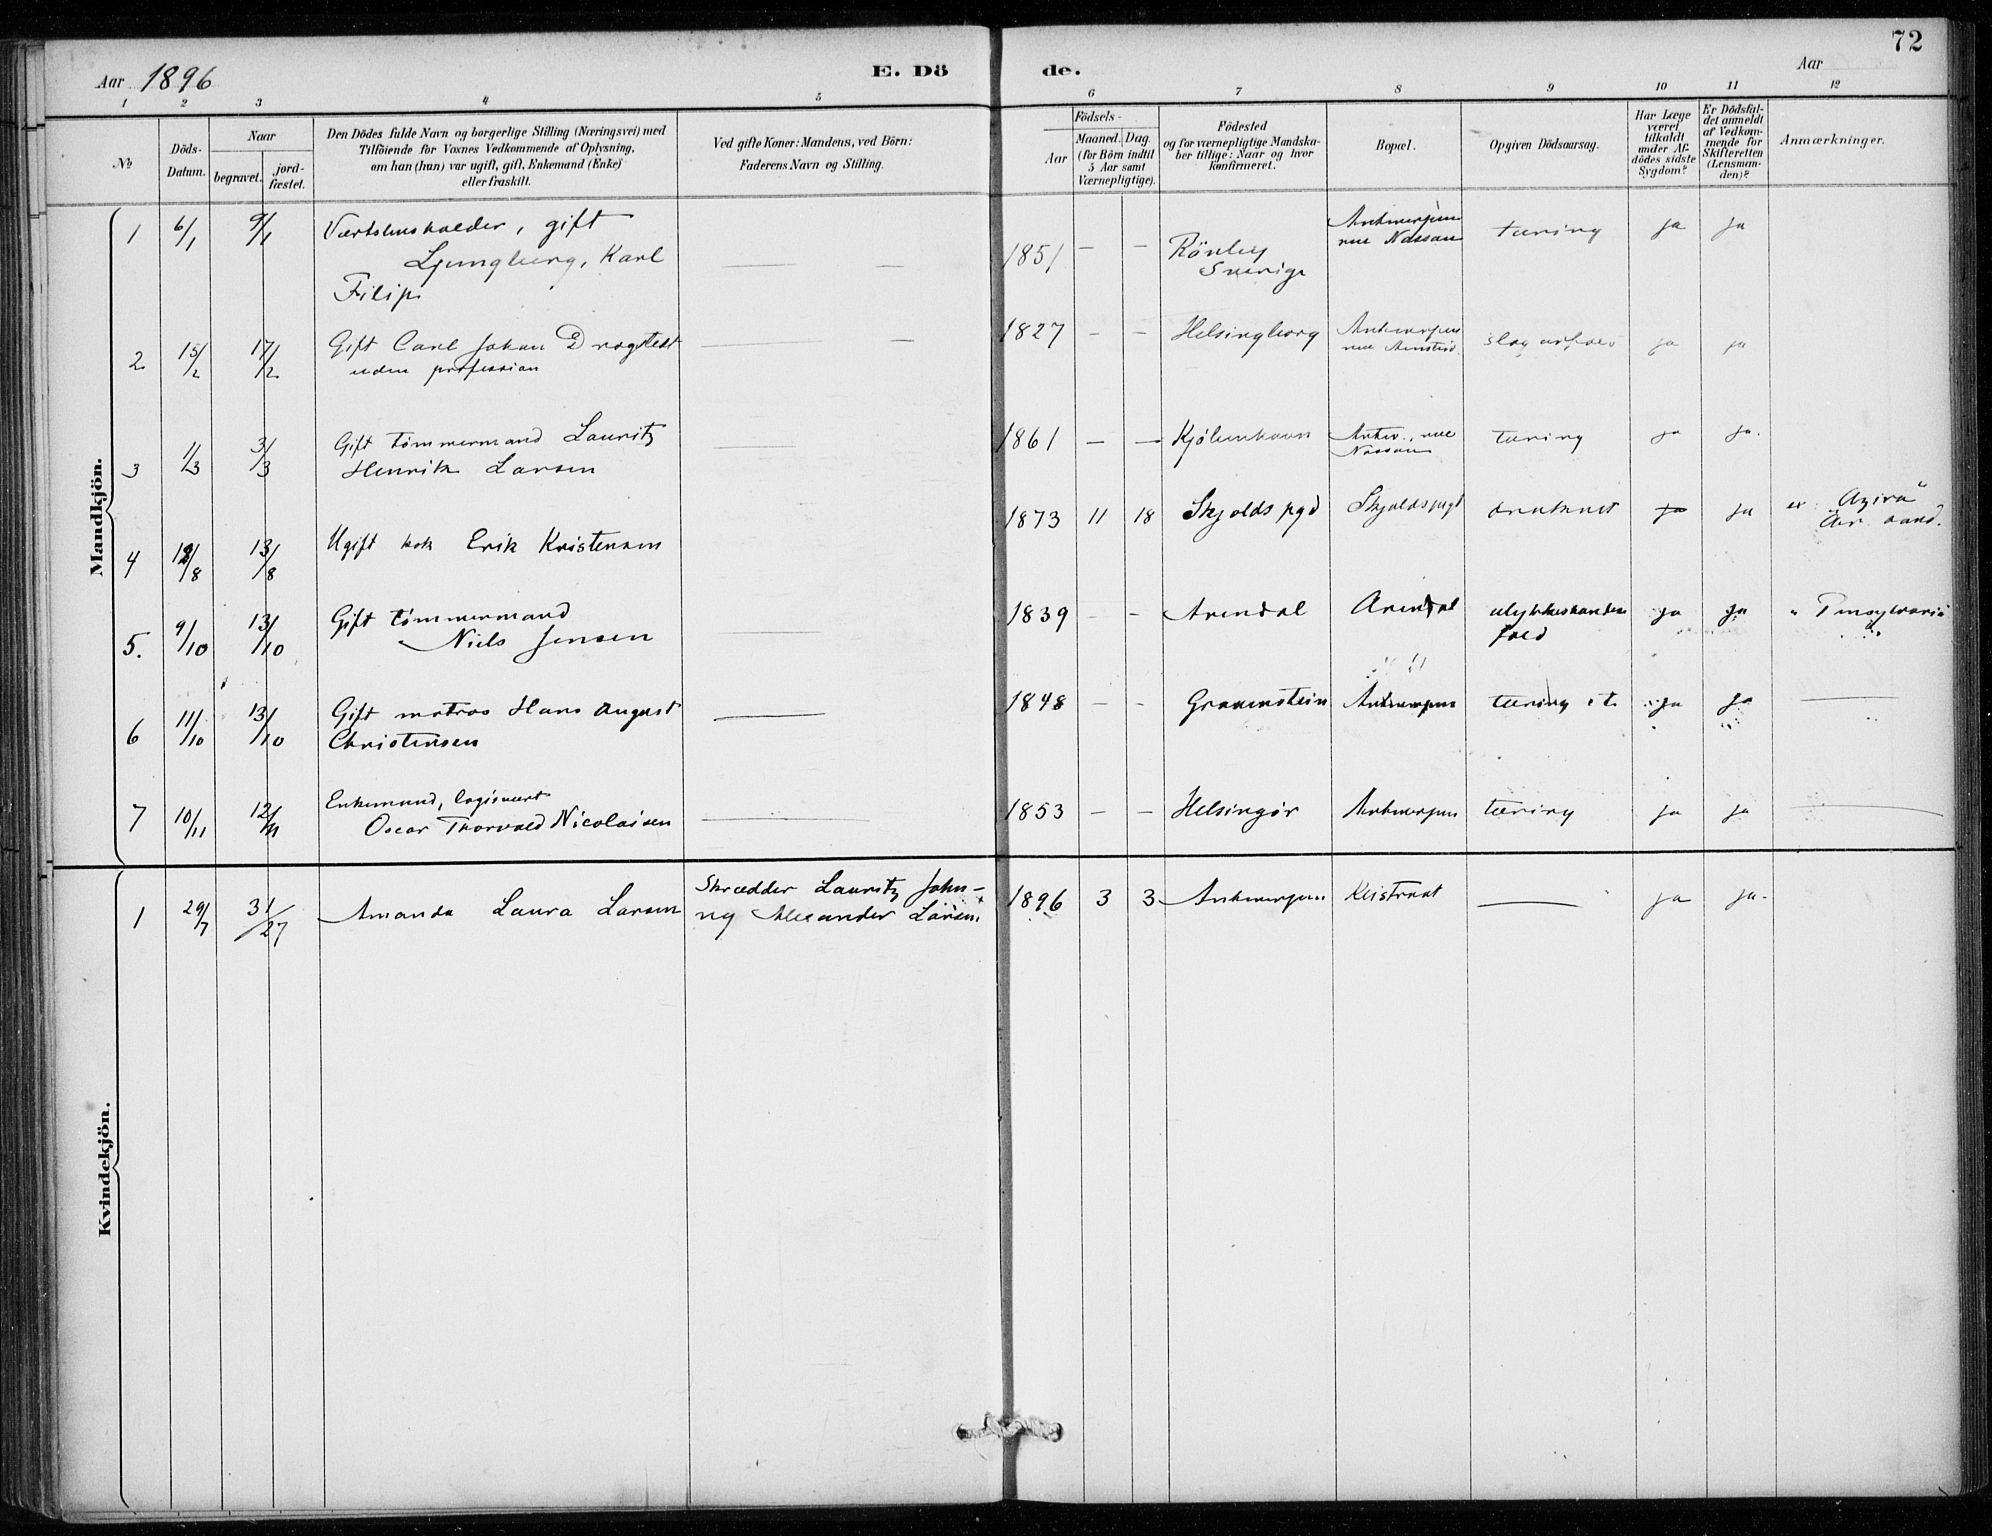 72
Aar 1896
E. Dö
de.
Aar
1 2 3 4 5 6 7 8 9 10 11 12
No
Döds-
Datum.
Naar
begravet.
jord-
fæstet.
Den Dödes fulde Navn og borgerlige Stilling (Næringsvei) med
Tilföiende for Voxnes Vedkommende af Oplysning,
om han (hun) var ugift, gift, Enkemand (Enke)
eller fraskilt.
Ved gifte Koner: Mandens, ved Börn:
Faderens Navn og Stilling.
Födsels-
Aar
Maaned. Dag.
(for Börn indtil
5 Aar samt
Værnepligtige).
Födested
og for værnepligtige Mandska-
ber tillige: Naar og hvor
konfirmeret.
Bopæl.
Opgiven Dödsaarsag.
Har Læge
været
tilkaldt
under Af-
dödes sidste
Sygdom?
Er Dödsfal-
det anmeldt
af Vedkom-
mende for
Skifteretten
(Lensman-
den)?
Anmærkninger.
Mandkjön.
1 6/1 9/1 Værtshusholder, gift
Ljungberg, Karl
Filip
1851 — — Rönby
Sverige
Antwerpen
rue Nassau
tæring ja ja
2 15/2 17/2 Gift Carl Johan Dragstedt
uden profession
1827 - - Helsingborg Antwerpen
rue
ja ja
3 1/3 3/3 Gift tømmermand Lauritz
Henrik Larsen
1861 — — Kjöbenhavn Antw., rue
Nassau
tæring ja ja.
4 12/8 13/8 Ugift kok Erik Kristensen
1873 11 18 Skjolds pgd Skjolds pgd druknet ja ja ex
5. 9/10 13/10 Gift tømmermand
Niels Jensen
1839 - - Arendal Arendal ulykkeshændelse
ja ja " Pensylvania
6 11/10 13/10 Gift matros Hans August
Christensen
1848 - - Gravenstein Antwerpen tæring ja ja
7 10/11 12/11 Enkemand, logisvært
Oscar Thorvald Nicolaisen
1853 — — Helsingør Antwerpen tæring ja ja
Kvindekjön.
1 29/7 31/27 Amanda Laura Larsen
Skrædder Lauritz John-
ny Alexander Larsen
1896 3 3 Antwerpen Keistraat ja ja.